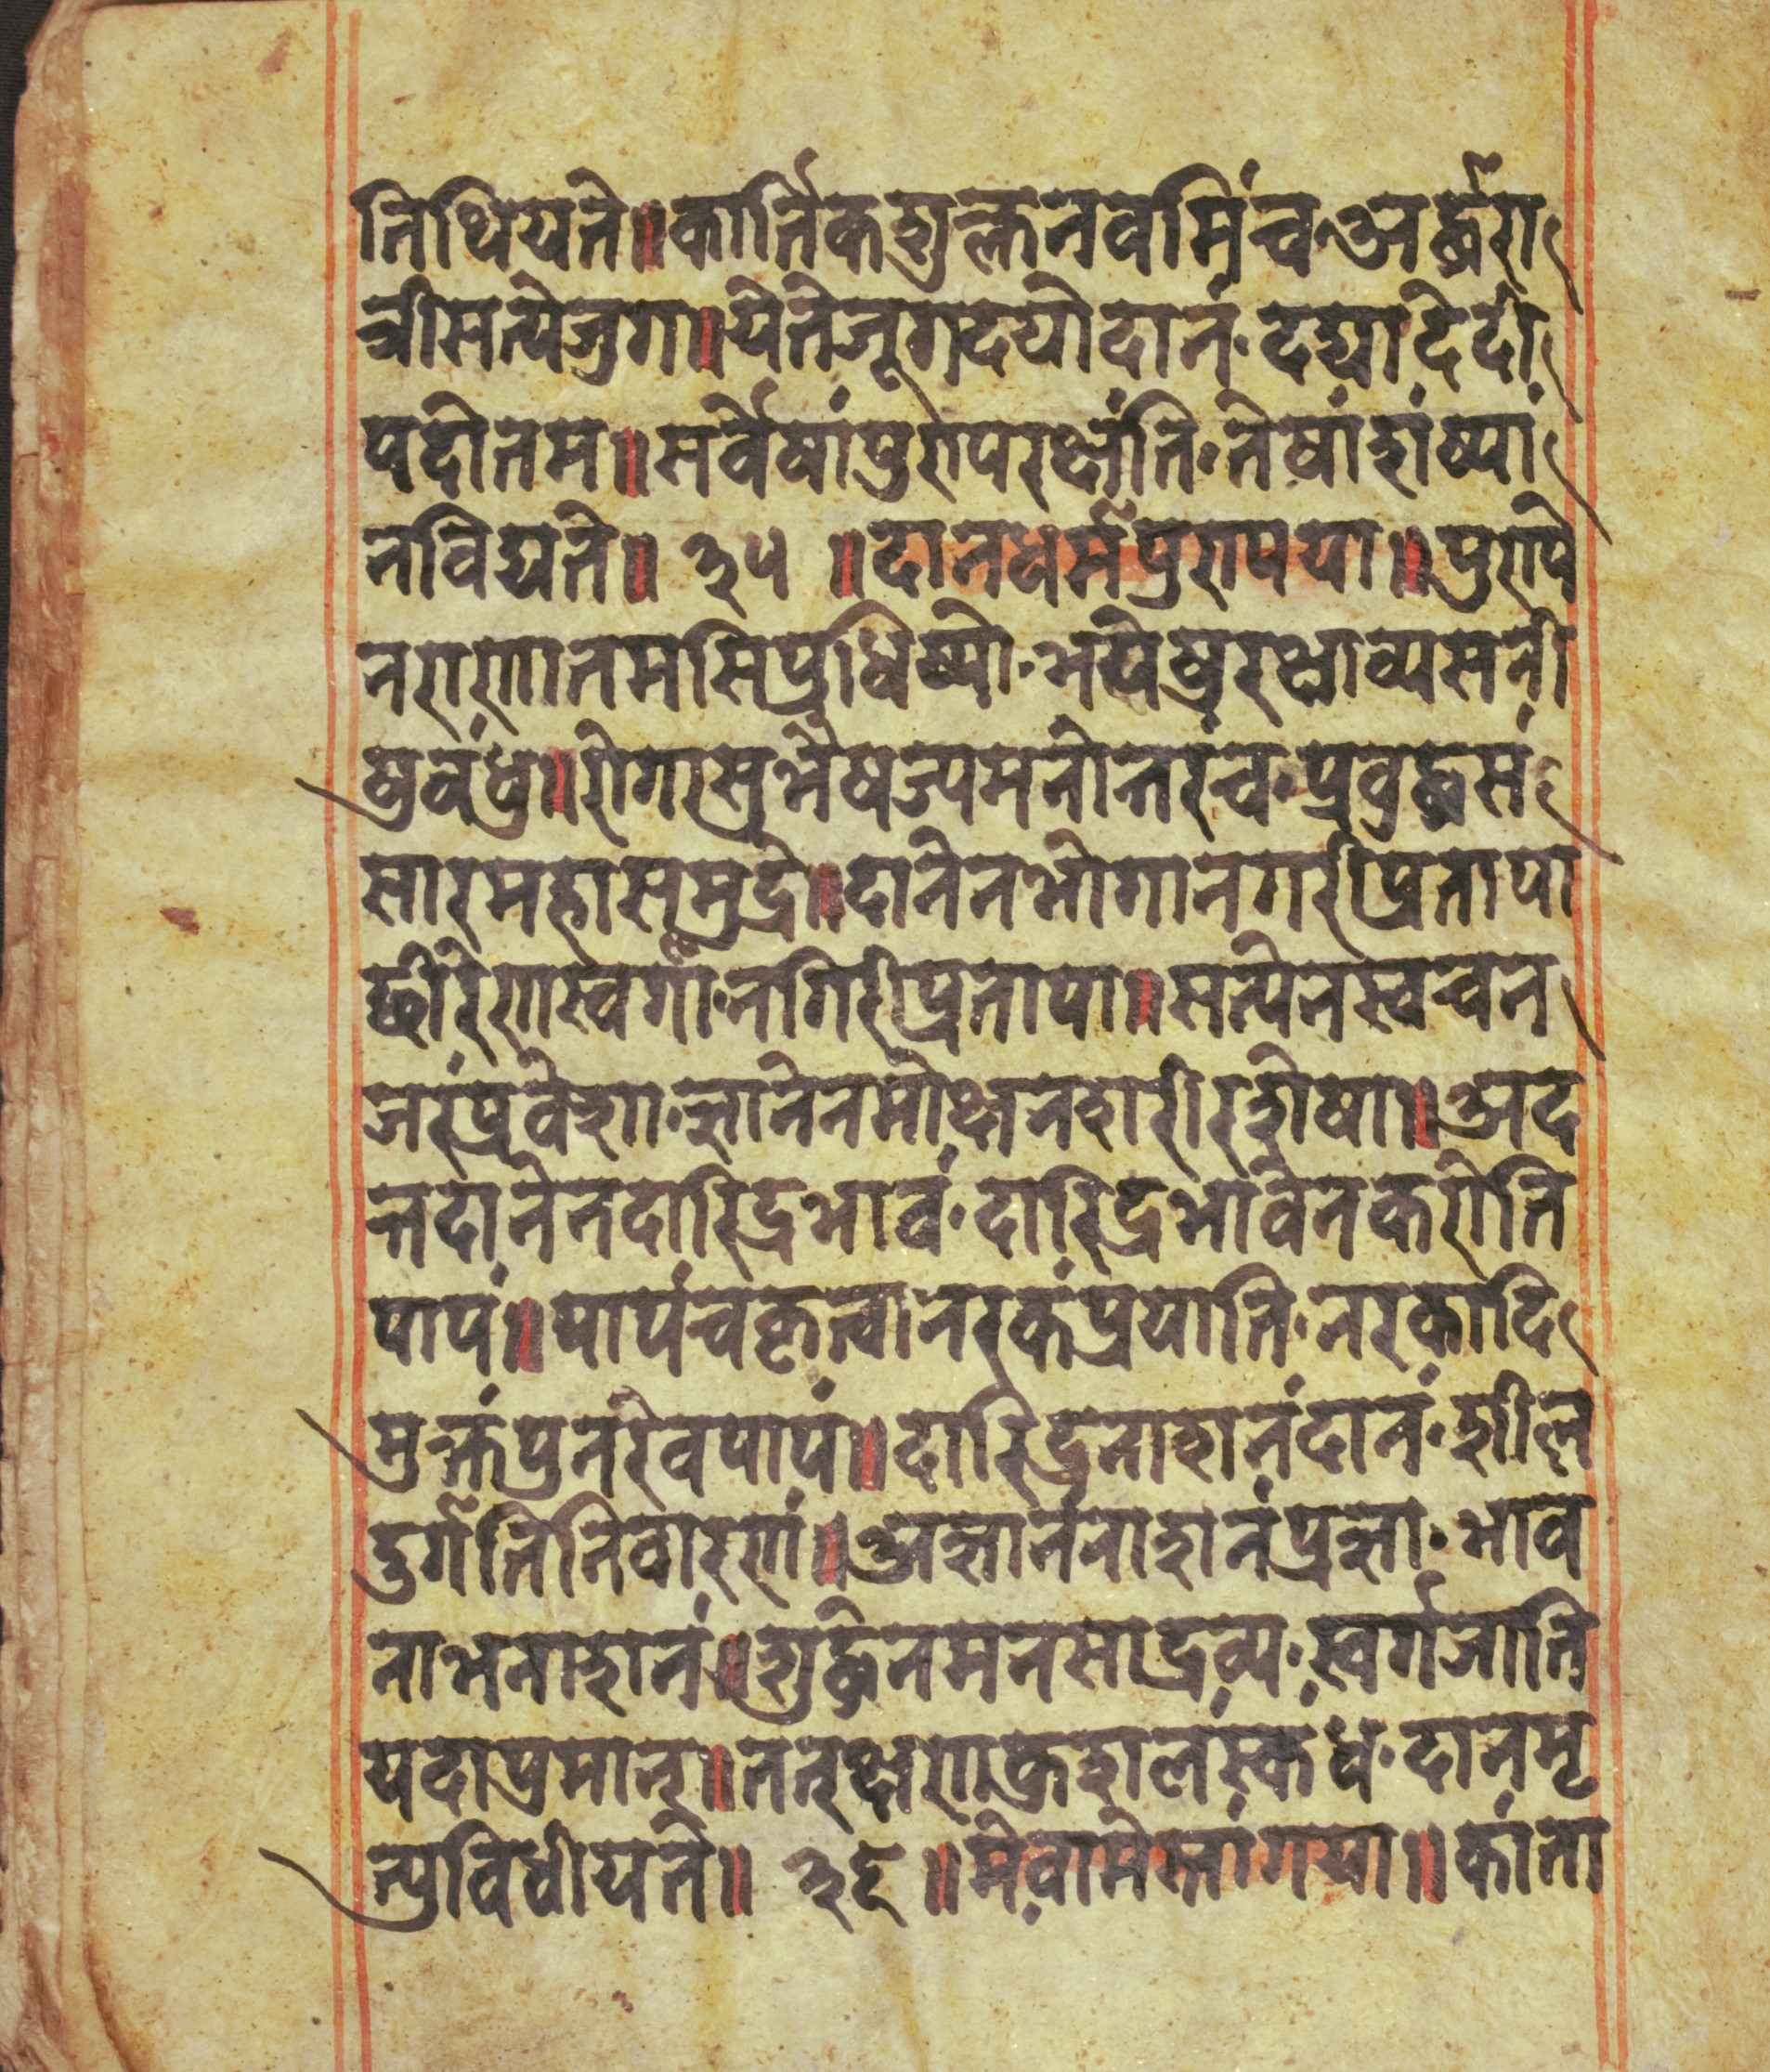 तिथियते॥कार्तिकशुक्लनवमिंच·अर्द्धरा
त्रीसत्येजुग॥येतेजूगदयोदानं·दद्यादेदी
पदोतम॥सर्वेषांपुरापरक्षंति·तेषांशंष्यां
नविद्यते॥ ३५ ॥दानधर्मपुरापया॥पुरापे
नराणातमसिपुधिष्यो·भयेषुरक्षाव्यसनी
षुबंधु॥रोगसुभैषज्यमनोत्तरंच·प्रवुद्धसं
सारमहासमुद्रे॥दानेनभोगानगरीप्रतापा
छीरेणस्वर्गा·नगिरीप्रतापा॥सत्येनस्वचन
जरंप्रवेशा·ज्ञानेनमोक्षनशरीरशेषा॥अद
त्तदानेनदारिद्रभावं·दारिद्रभावेनकरोति
पापं॥पापंचकृत्वानरकंप्रयाति·नरकादि
मुक्तंपुनरेवपापं॥दारिद्रनाशनंदानं·शील
दुर्गतिनिवारणं॥अज्ञाननाशनंप्रज्ञा·भाव
नाभनाशनं॥शुद्धेनमनसाद्रव्य·स्वर्गजाति
यदाप्रमान्॥ततक्षणाक्रशलंस्कंध·दानमृ
त्युविधीयते॥ ३६ ॥मेवामेलांगया॥कांता